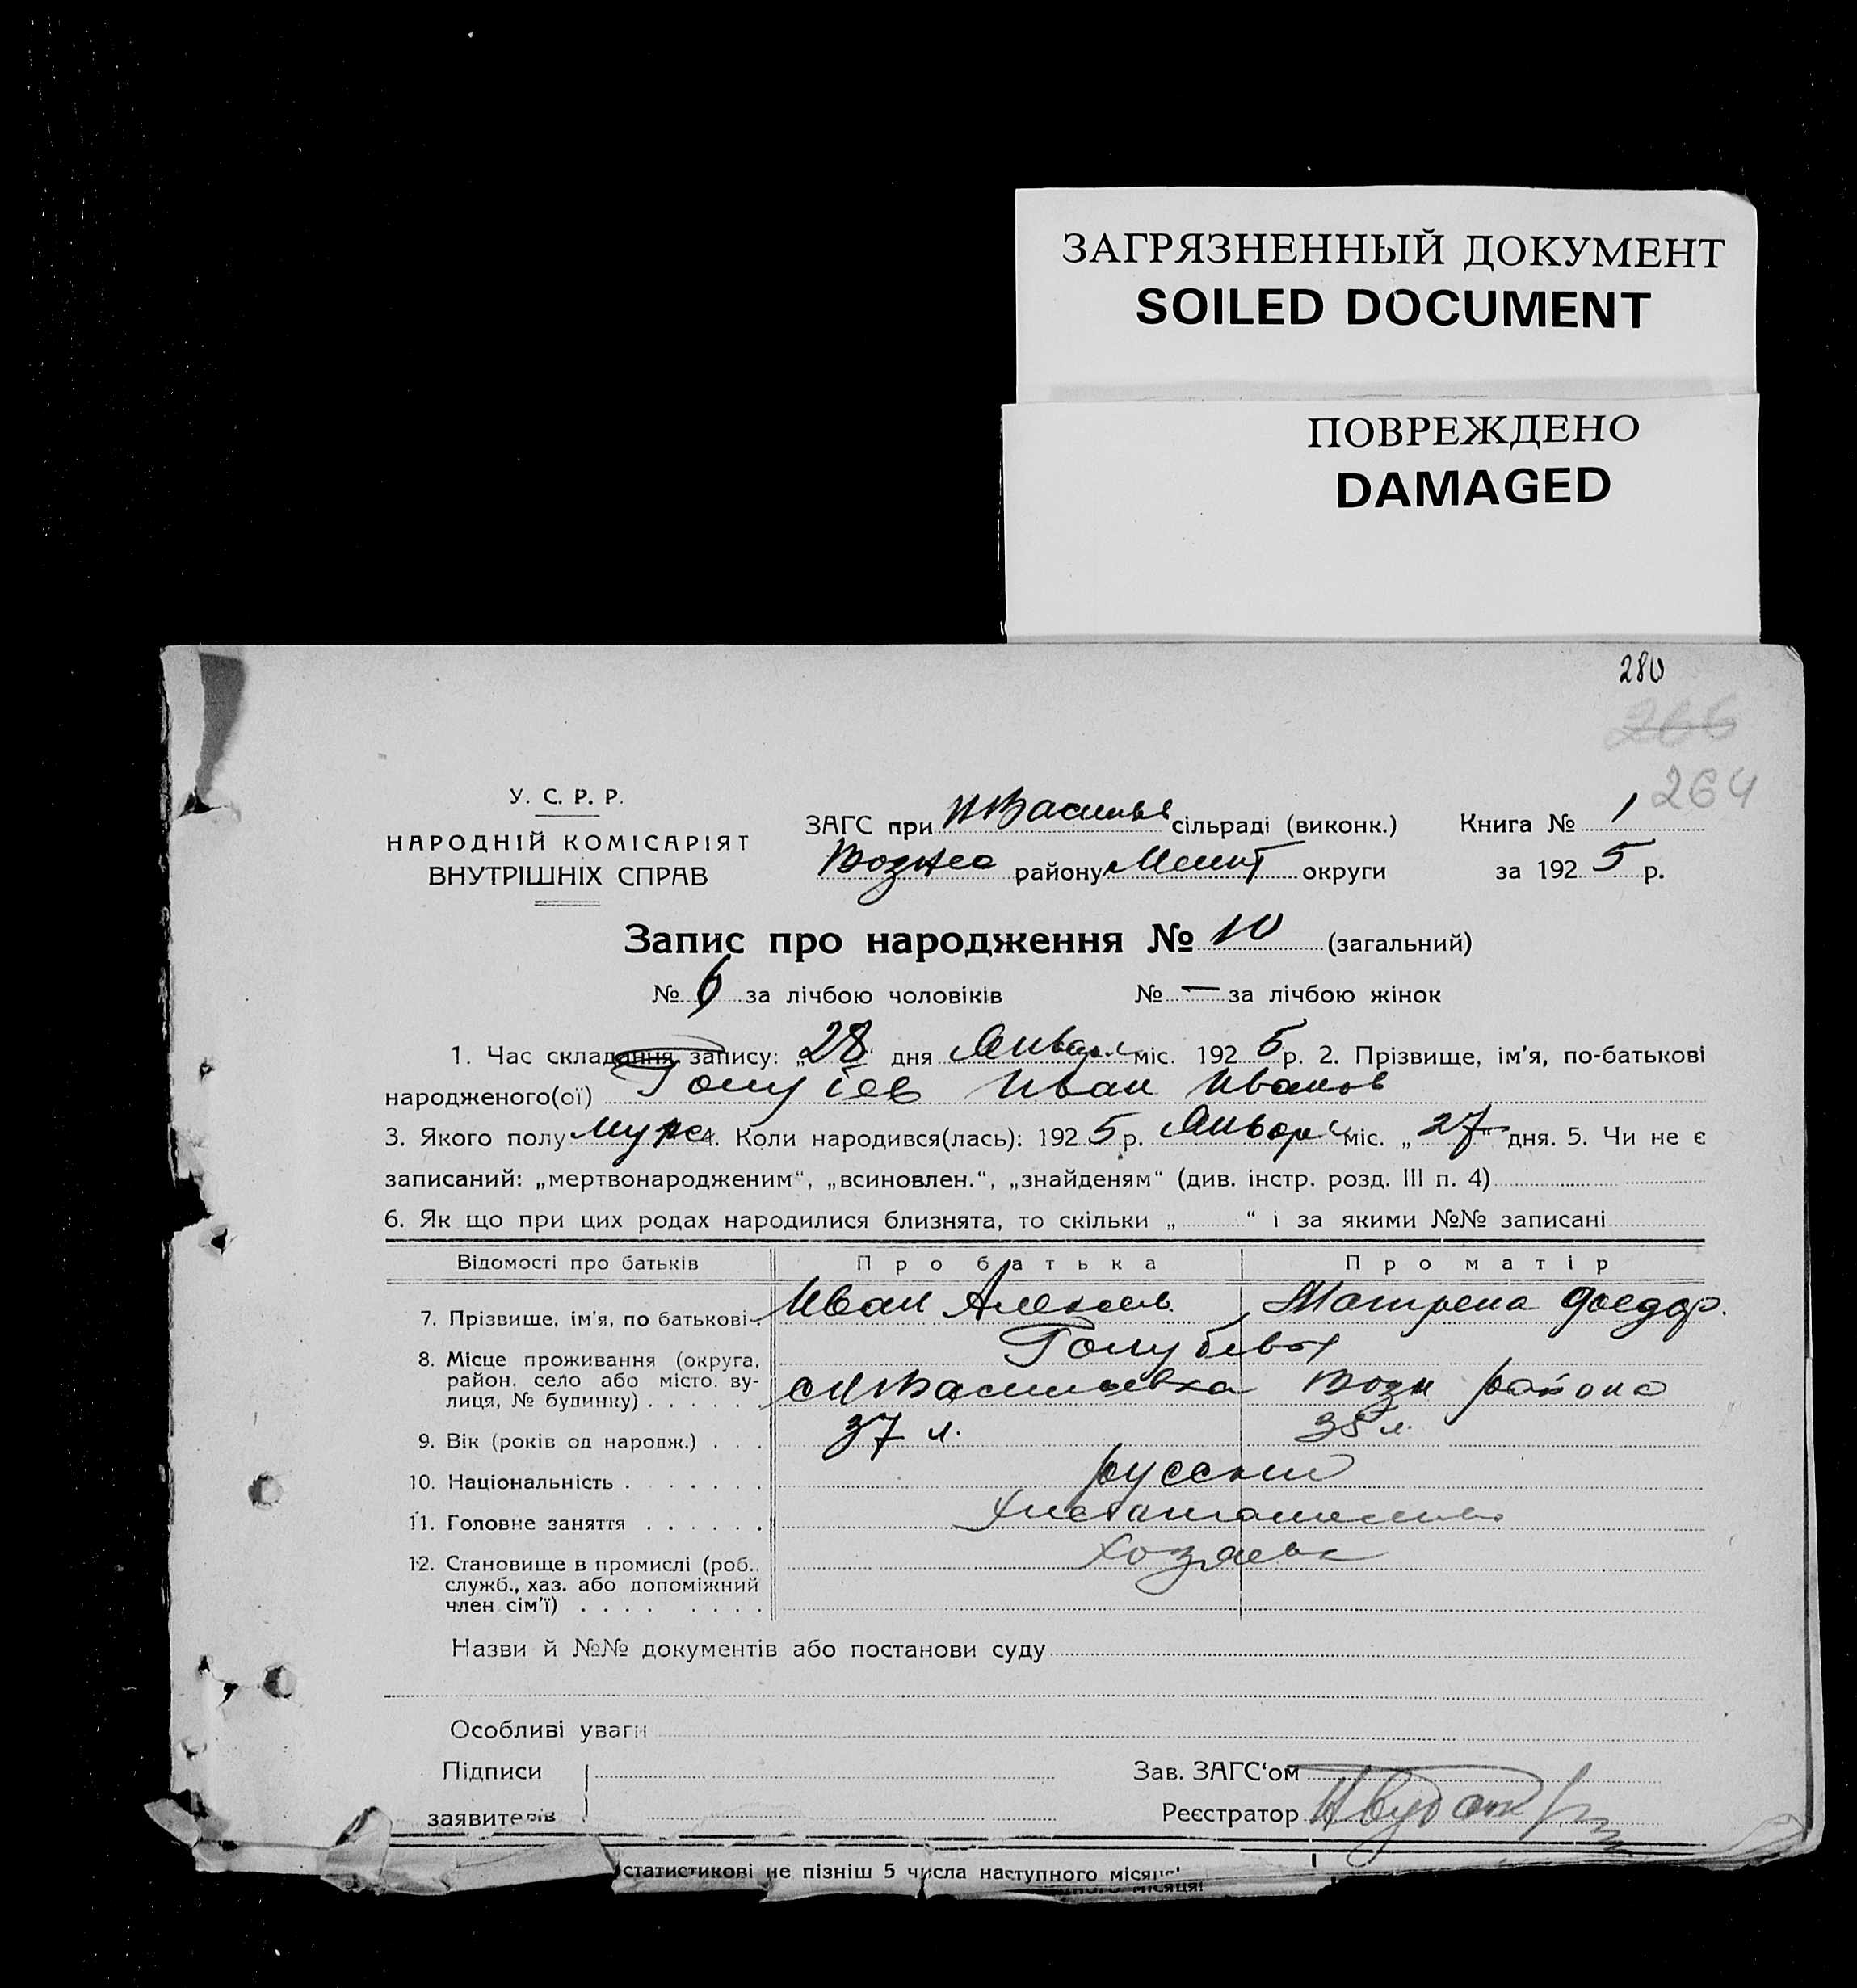 ЗАГРЯЗНЕННЫЙ ДОКУМЕНТ
SOILED DOCUMENT
ПОВРЕЖДЕНО
DAMAGED
280
266
264
У. С. Р. Р.
НАРОДНІЙ КОМІСАРІЯТ
ВНУТРІШНІХ СПРАВ
ЗАГС при НВасильев сільраді (виконк.) Книга № 1
района Мелит округи за 1925 р.
Запис про народження № 10 (загальний)
№ 6 за лічбою чоловіків № — за лічбою жінок
1. Час складання запису: „28“ дня Января міс. 1925 р. 2. Прізвище, ім'я, по-батькові
народженого(ої) Голубев Иван Иванов
3. Якого полу муж 4. Коли народився(лась): 1925 р. Января міс. „27“ дня. 5. Чи не є
записаний: „мертвонародженим“, „всиновлен.“, „знайденям“ (див. інстр. розд. III п. 4)
6. Як що при цих родах народилися близнята, то скільки „ “ і за якими №№ записані
Відомості про батьків Про батька Про матір
7. Прізвище, ім'я, по батькові Иван Алексеев. Матрена Фоедор.
Голубевы
8. Місце проживання (округа,
район, село або місто, ву-
лиця, № будинку) сНВасильевка Возн района
9. Вік (років од народж.) 37 л. 35 л.
10. Національність русский
11. Головне заняття
12. Становище в промислі (роб.,
служб., хаз. або допоміжний
член сім'ї) Хозяева
Назви й №№ документів або постанови суду
Особливі уваги
Підписи
заявителів
Зав. ЗАГС'ом
Реєстратор
статистикові не пізніш 5 числа наступного місяця!